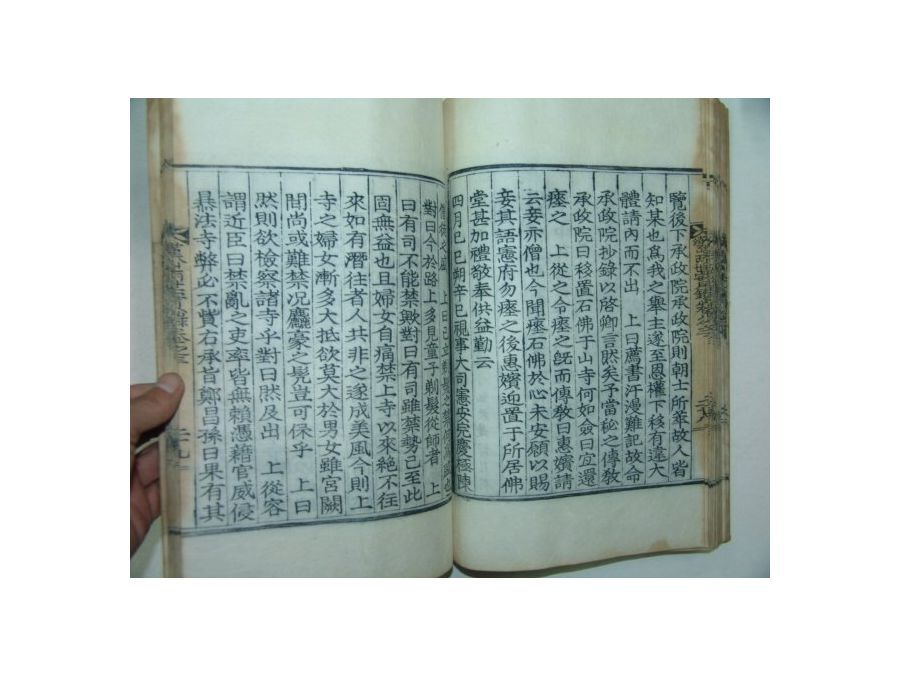 覽後下承政院承政院則朝士所萃故人皆
知某也爲我之擧主遂至恩權下移有違大
體請內而不出 上曰薦書汗漫難記故命
承政院抄錄以啓卿言然矣予當秘之傳敎
承政院曰移置石佛于山寺何如僉曰宜還
瘞之 上從之令瘞之旣而傳敎曰惠嬪請
云妾亦僧也今聞瘞石佛於心未安願以賜
妾其語憲府勿瘞之後惠嬪迎置于所居佛
堂甚加禮敬奉供益勤云
四月己巳朔辛巳視事大司憲安完慶極陳
上曰已立
對曰今於路上多見童子剃髮從師者 上
曰有司不能禁歟對曰有司雖禁勢已至此
固無益也且婦女自痛禁上寺以來絶不往
來如有潛往者人共非之遂成美風今則上
寺之婦女漸多大抵欲莫大於男女雖宮闕
間尚或難禁况麤豪之髡豈可保乎 上曰
然則欲檢察諸寺乎對曰然及出 上從容
謂近臣曰禁亂之吏率皆無賴憑藉官威侵
暴法寺弊必不貲右承旨鄭昌孫曰果有其